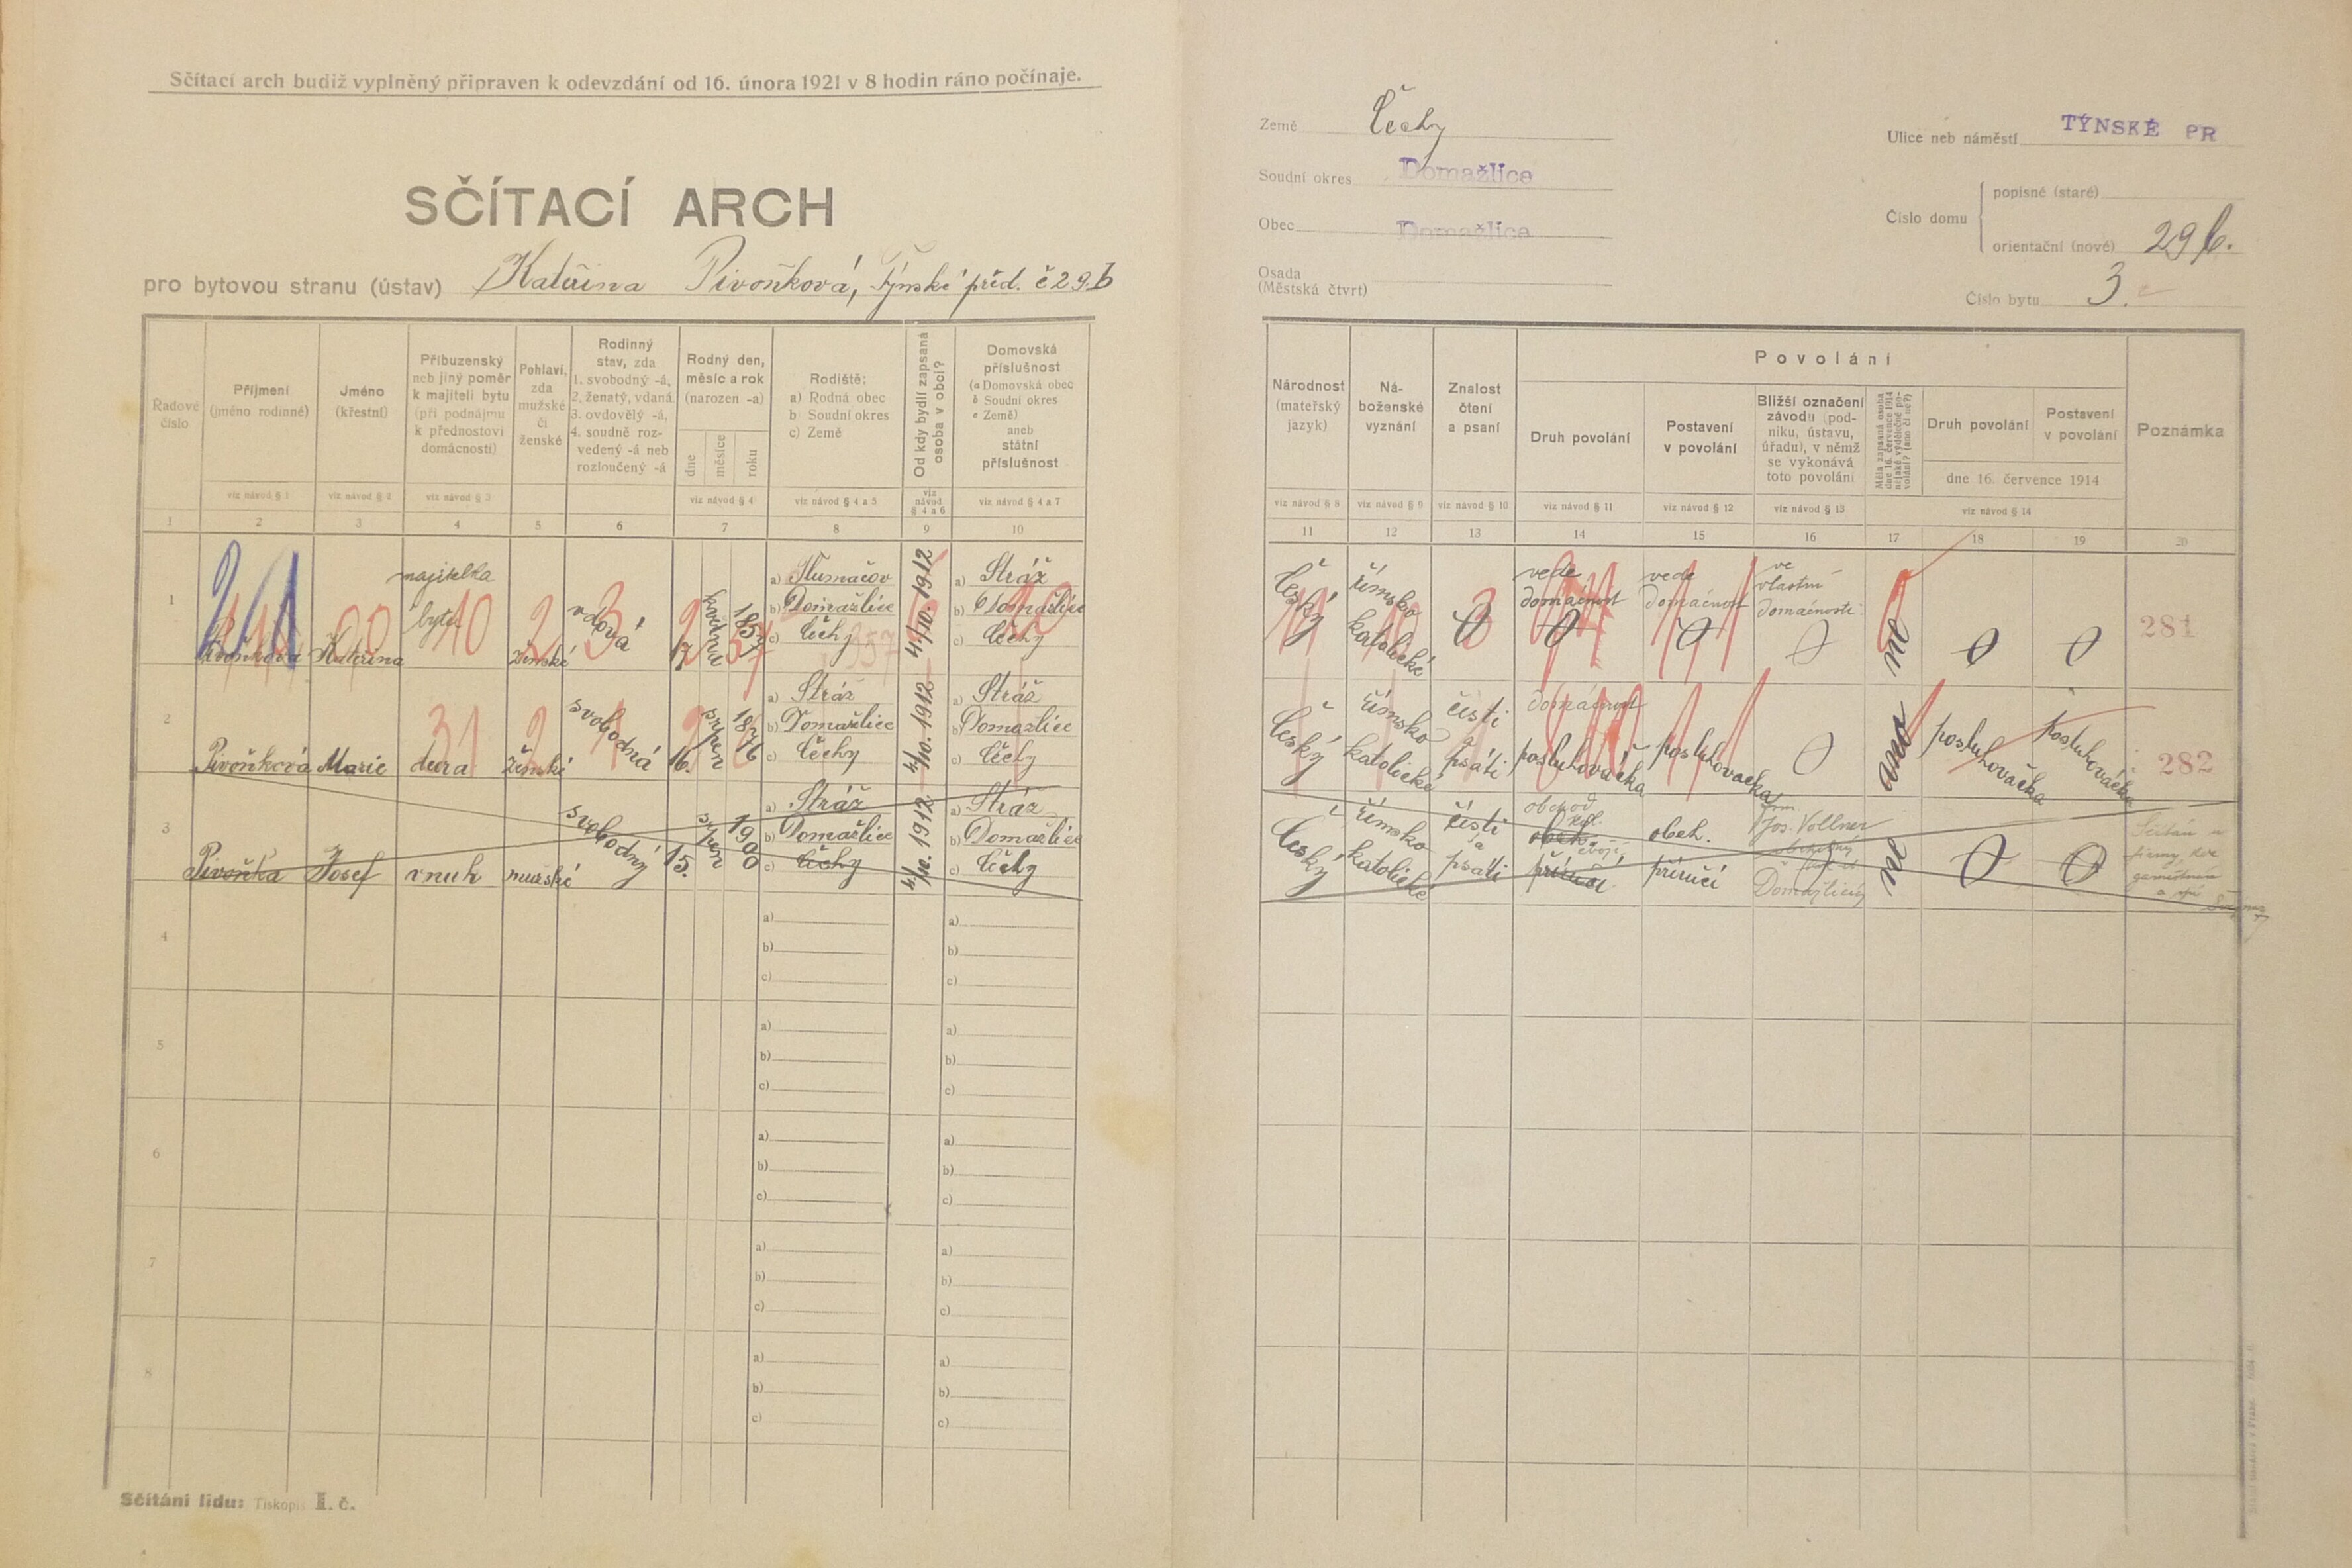 Sčítací arch budiž vyplněný připraven k odevzdání od 16. února 1921 v 8 hodin ráno počínaje.
SČÍTACÍ ARCH
pro bytovou stranu (ústav) Kateřina Pivoňková, Týnské před. č 29b
Řadové číslo
Příjmení (jméno rodinné)
Jméno (křestní)
Příbuzenský neb jiný poměr k majiteli bytu (při podnájmu k přednostovi domácnosti)
Pohlaví, zda mužské či ženské
Rodinný stav, zda
1. svobodný -á,
2. ženatý, vdaná
3. ovdovělý -á,
4. soudně rozvedený -á neb rozloučený -á
Rodný den, měsíc a rok (narozen -a)
dne
měsíce
roku
Rodiště:
a) Rodná obec
b) Soudní okres
c) Země
Od kdy bydlí zapsaná osoba v obci?
Domovská příslušnost
(a Domovská obec
b Soudní okres
c Země)
aneb
státní příslušnost
viz návod § 1
viz návod § 2
viz návod § 3
viz návod § 4
viz návod § 4 a 5
viz návod § 4 a 6
viz návod § 4 a 7
1 2 3 4 5 6 7 8 9 10
1 Pivoňková Kateřina majitelka bytu ženské vdová 17. května 1857
a) Tlumačov
b) Domažlice
c) Čechy
4/10. 1912
a) Stráž
b) Domažlice
c) Čechy
2 Pivoňková Marie dcera ženské svobodná 16. srpen 1876
a) Stráž
b) Domažlice
c) Čechy
4/10. 1912
a) Stráž
b) Domažlice
c) Čechy
3 Pivoňka Josef vnuk mužské svobodný 15. srpen 1900
a) Stráž
b) Domažlice
c) Čechy
4/10. 1912
a) Stráž
b) Domažlice
c) Čechy
4
a) a)
b) b)
c) c)
5
a) a)
b) b)
c) c)
6
a) a)
b) b)
c) c)
7
a) a)
b) b)
c) c)
8
a) a)
b) b)
c) c)
Sčítání lidu: Tiskopis I. č.
Země Čechy
Soudní okres Domažlice
Obec Domažlice
Osada (Městská čtvrt)
Ulice neb náměstí TÝNSKÉ PR
Číslo domu
popisné (staré)
orientační (nové) 29 b.
Číslo bytu 3.
Národnost (mateřský jazyk)
Náboženské vyznání
Znalost čtení a psaní
Povolání
Druh povolání
Postavení v povolání
Bližší označení závodu (podniku, ústavu, úřadu), v němž se vykonává toto povolání
Měla zapsaná osoba dne 16. července 1914 nějaké výdělečné povolání? (ano či ne?)
Druh povolání
Postavení v povolání
dne 16. července 1914
Poznámka
viz návod § 8
viz návod § 9
viz návod § 10
viz návod § 11
viz návod § 12
viz návod § 13
viz návod § 14
11 12 13 14 15 16 17 18 19 20
český římsko katolické 0 vede domácnost 0 vede domácnost 0 ve vlastní domácnosti 0 ne 0 0 281
český římsko katolické čísti a psáti domácnost posluhovačka posluhovačka 0 ano posluhovačka posluhovačka 282
český římsko katolické čísti a psáti obchod příručí obch. příručí Jos. Vollner ne 0 0